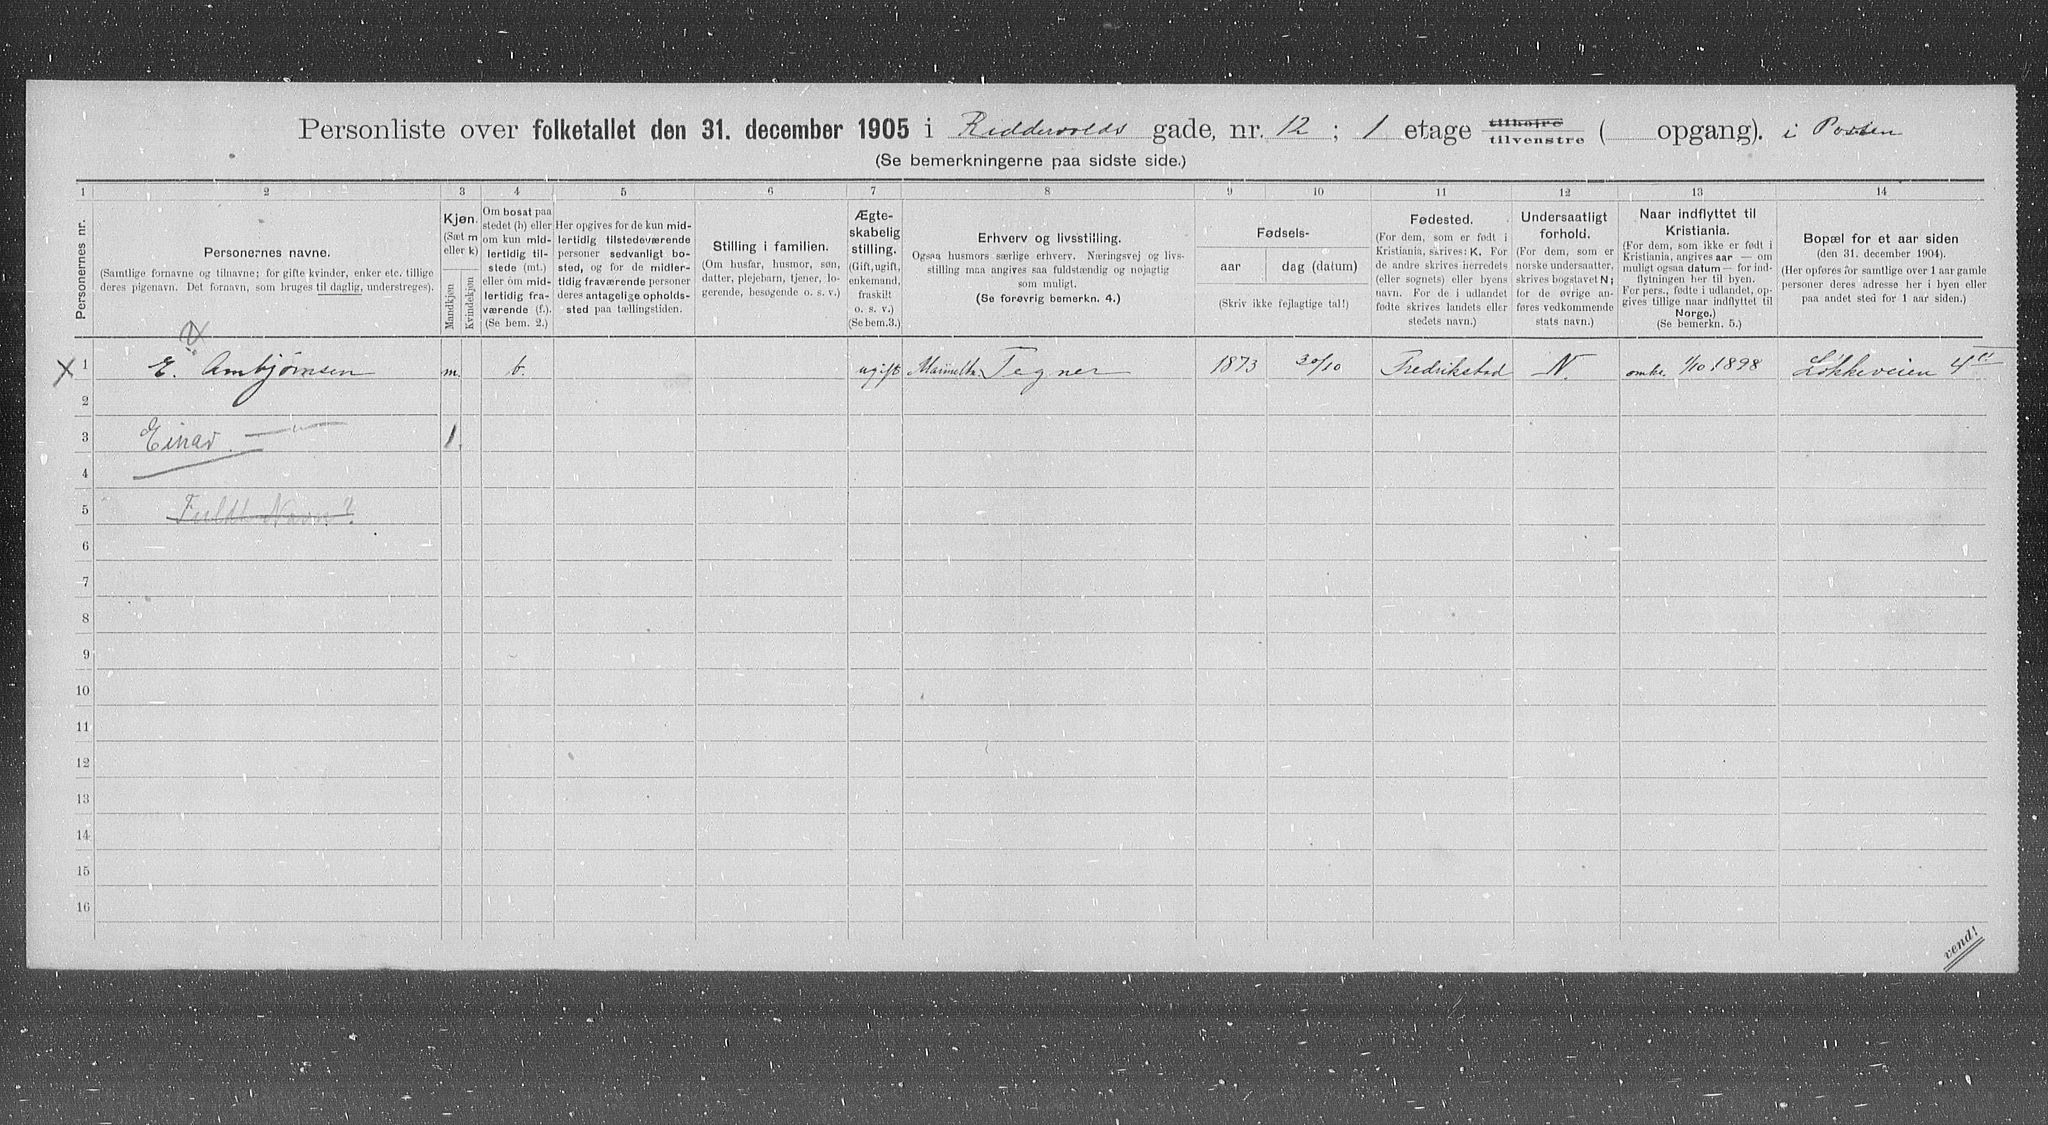 Personliste over folketallet den 31. december 1905 i Riddervolds gade, nr. 12 ; 1 etage tilhøire tilvenstre ( opgang). i Porten
(Se bemerkningerne paa sidste side.)
1 2 3 4 5 6 7 8 9 10 11 12 13 14
Personernes nr.
Personernes navne.
(Samtlige fornavne og tilnavne; for gifte kvinder, enker etc. tillige
deres pigenavn. Det fornavn, som bruges til daglig, understreges).
Kjøn.
(Sæt m
eller k)
Mandkjøn
Kvindekjøn
Om bosat paa
stedet (b) eller
om kun mid-
lertidig til-
stede (mt.)
eller om mid-
lertidig fra-
værende (f.).
(Se bem. 2.)
Her opgives for de kun mid-
lertidig tilstedeværende
personer sedvanligt bo-
sted, og for de midler-
tidig fraværende personer
deres antagelige opholds-
sted paa tællingstiden.
Stilling i familien.
(Om husfar, husmor, søn,
datter, plejebarn, tjener, lo-
gerende, besøgende o. s. v.)
Ægte-
skabelig
stilling.
(Gift, ugift,
enkemand,
fraskilt
o. s. v.)
(Se bem.3.)
Erhverv og livsstilling.
Ogsaa husmors særlige erhverv. Næringsvej og livs-
stilling maa angives saa fuldstændig og nøjagtig
som muligt.
(Se forøvrig bemerkn. 4.)
Fødsels-
aar
dag (datum)
(Skriv ikke fejlagtige tal!)
Fødested.
(For dem, som er født i
Kristiania, skrives: K. For
de andre skrives herredets
(eller sognets) eller byens
navn. For de i udlandet
fødte skrives landets eller
stedets navn.)
Undersaatligt
forhold.
(For dem, som er
norske undersaatter,
skrives bogstavet N;
for de øvrige an-
føres vedkommende
stats navn.)
Naar indflyttet til
Kristiania.
(For dem, som ikke er født i
Kristiania, angives aar — om
muligt ogsaa datum — for ind-
flytningen her til byen.
For pers., fødte i udlandet, op-
gives tillige naar indflyttet til
Norge.)
(Se bemerkn. 5.)
Bopæl for et aar siden
(den 31. december 1904).
(Her opføres for samtlige over 1 aar gamle
personer deres adresse her i byen eller
paa andet sted for 1 aar siden.)
X 1 E. Ambjørnsen m. b. ugift Tegner 1873 30/10 Fredrikstad N. omkr. 1/10 1898 Løkkeveien 4 II
2
3 Einar — " — 1.
4
5 Fuldt Navn?
6
7
8
9
10
11
12
13
14
15
16
vend!